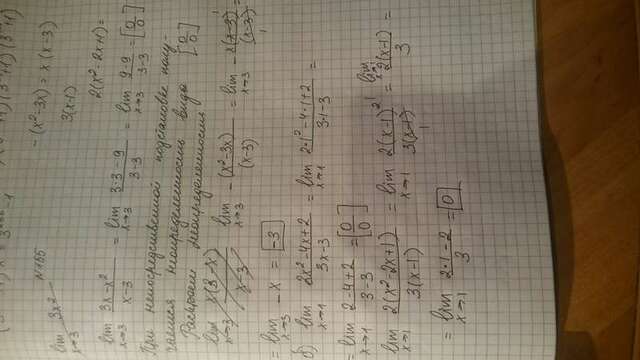 N155
lim x→3 3x²
-(x²-3x) = x(x-3)
3(x-1)
2(x²-2x+1) =
lim x→3 (3x-x²)/(x-3) = lim x→3 (3·3-9)/(3-3) = lim x→3 (9-9)/(3-3) = [0/0]
При непосредственной подстановке полу-
чается неопределенность вида [0/0]
Раскроем неопределенность
lim x→3 x(3-x)/(x-3) lim x→3 -(x²-3x)/(x-3) = lim x→3 -x(x-3)/(x-3) =
= lim x→3 -x = -3
б) lim x→1 (2x²-4x+2)/(3x-3) = lim x→1 (2·1²-4·1+2)/(3·1-3) =
= lim x→1 (2-4+2)/(3-3) = [0/0]
lim x→1 2(x²-2x+1)/3(x-1) = lim x→1 2(x-1)²/3(x-1) = lim x→1 2(x-1)/3 =
= lim x→1 (2·1-2)/3 = 0